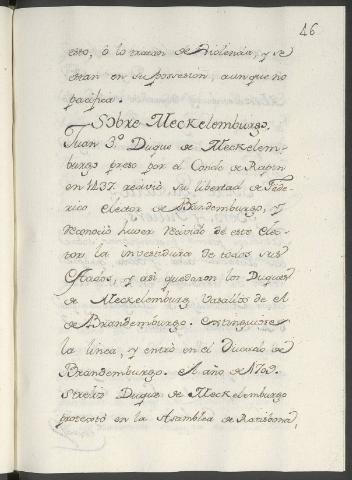 46
esto, ò lo traten de violencia, y se
estan en su possession, aunque no
pacifica.
Sobre Meckelemburgo.
Juan 3.º Duque de Meckelem-
burgo preso por el Conde de Rapin
en 1437. recivió su libertad de Fede-
rico elector de Brandemburgo, y
reconocio haver recivido de este Elec-
tor la investidura de todos sus
estados, y asi quedaron los Duques
de Meckelemburg Vasallos de el
de Brandemburgo. extinguiose
la linea, y entró en el Ducado de
Brandemburgo. el año de 1709.
Strelitz Duque de Meckelemburgo
protestó en la Asamblea de Ratisbona,